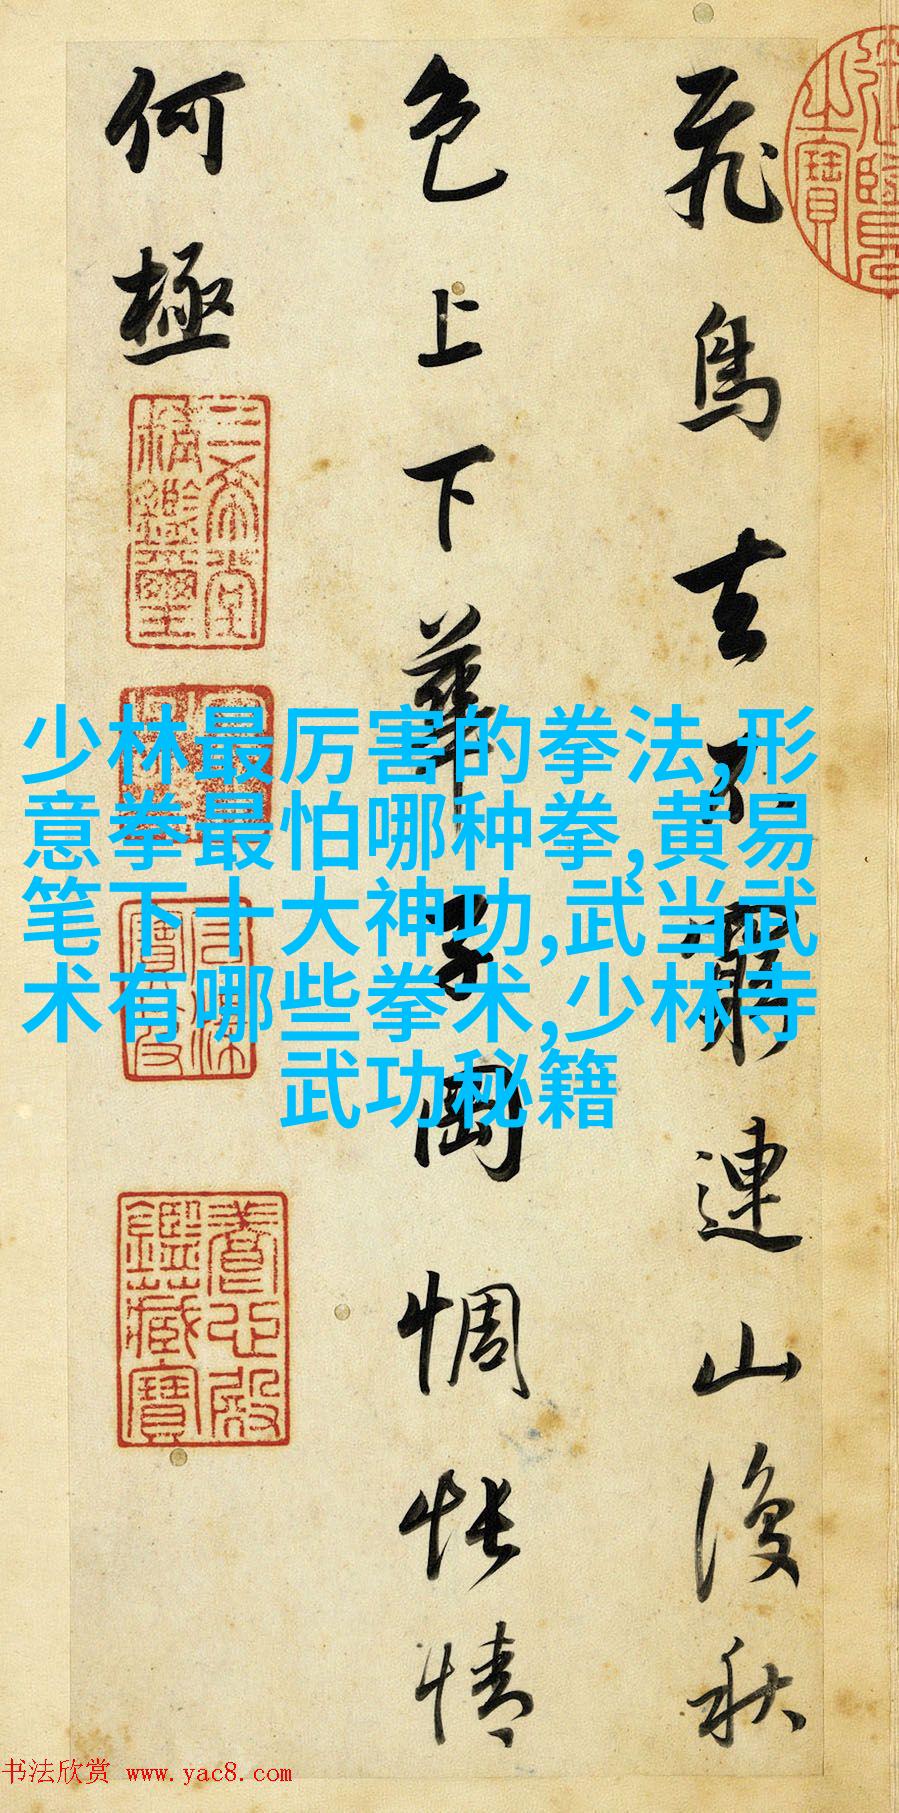 飛鳥去不窮連山復秋
色上下華子岡惆悵情
何極
三希堂精鑑璽
養心殿鑑藏寶
少林最厉害的拳法,形
意拳最怕哪种拳,黄易
笔下十大神功,武当武
术有哪些拳术,少林寺
武功秘籍
书法欣赏 www.yac8.com